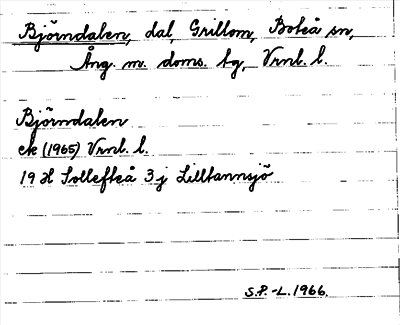 Björndalen, dal, Grillom, Boteå sn,
Ång. m. doms. tg, Vrnl. l.
Björndalen
ek (1965) Vrnl. l.
19 H Sollefteå 3 j Lilltannsjö
S.P.-L. 1966.